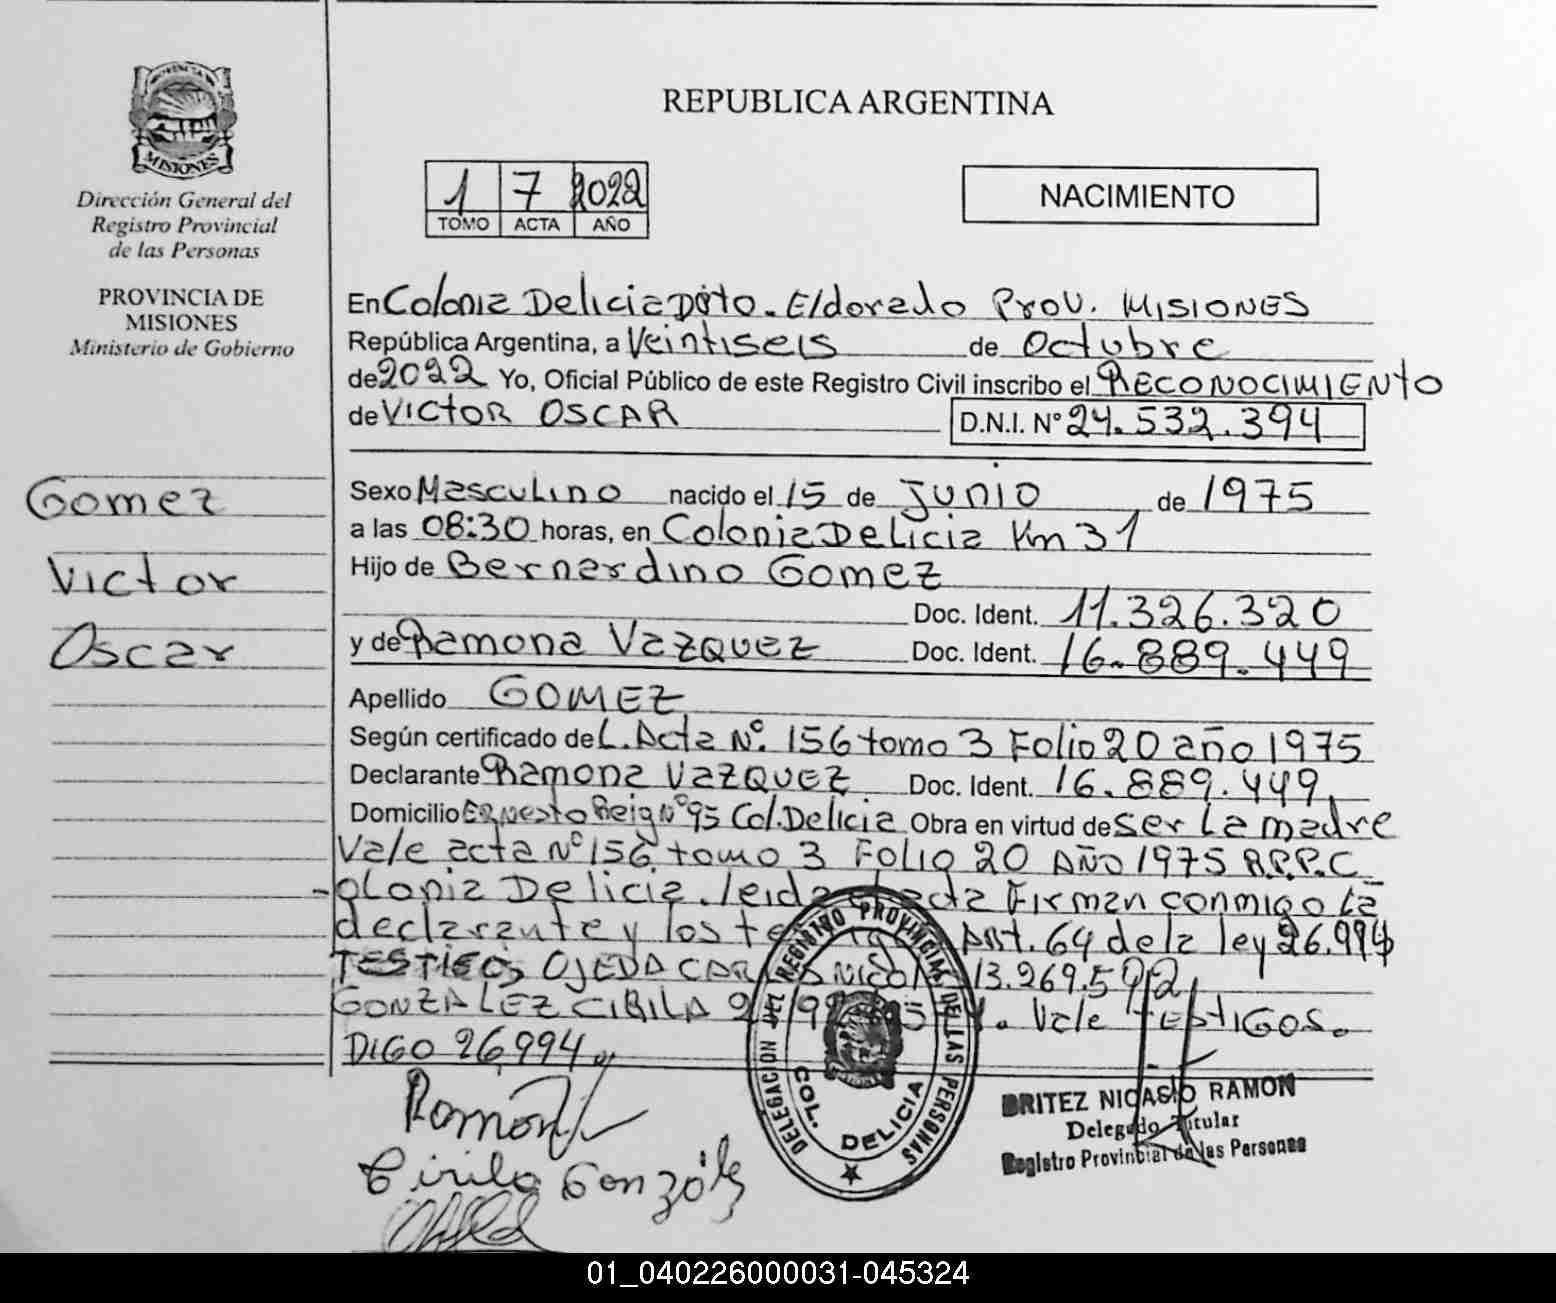 PROVINCIA
MISIONES
Dirección General del
Registro Provincial
de las Personas
PROVINCIA DE
MISIONES
Ministerio de Gobierno
Gomez
Victor
Oscar
REPUBLICA ARGENTINA
1 7 2022
TOMO ACTA AÑO
NACIMIENTO
En Colonia Delicia Dpto. Eldorado Prov. MISIONES
República Argentina, a Veintiseis de Octubre
de 2022 Yo, Oficial Público de este Registro Civil inscribo el RECONOCIMIENTO
de VICTOR OSCAR D.N.I. N° 24.532.394
Sexo Masculino nacido el 15 de JUNIO de 1975
a las 08:30 horas, en Colonia Delicia Km 31
Hijo de Bernardino Gomez
Doc. Ident. 11.326.320
y de Ramona VAZQUEZ Doc. Ident. 16.889.449
Apellido GOMEZ
Según certificado de L. Acta N°. 156 tomo 3 Folio 20 año 1975
Declarante Ramona VAZQUEZ Doc. Ident. 16.889.449
Domicilio Ernesto Reig N° 95 Col. Delicia Obra en virtud de ser la madre
Vale acta N° 156 tomo 3 Folio 20 AÑO 1975 R.P.P.C
-olonia Delicia. leida el acta Firman conmigo la
declarante y los Art. 64 de la ley 26.994
TESTIGOS OJEDA 13.269.592
GONZALEZ CIRILA Vale TESTIGOS.
DIGO 26,994
Ramona
Cirila González
DELEGACION DEL REGISTRO PROVINCIAL DE LAS PERSONAS
COL. DELICIA
BRITEZ NICASIO RAMON
Delegado Titular
Registro Provincial de las Personas
01_040226000031-045324